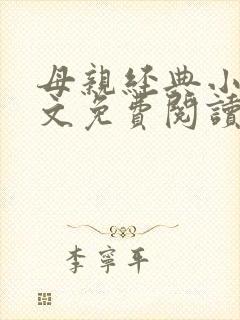 母親經典小
文免費閱讀
李寧平